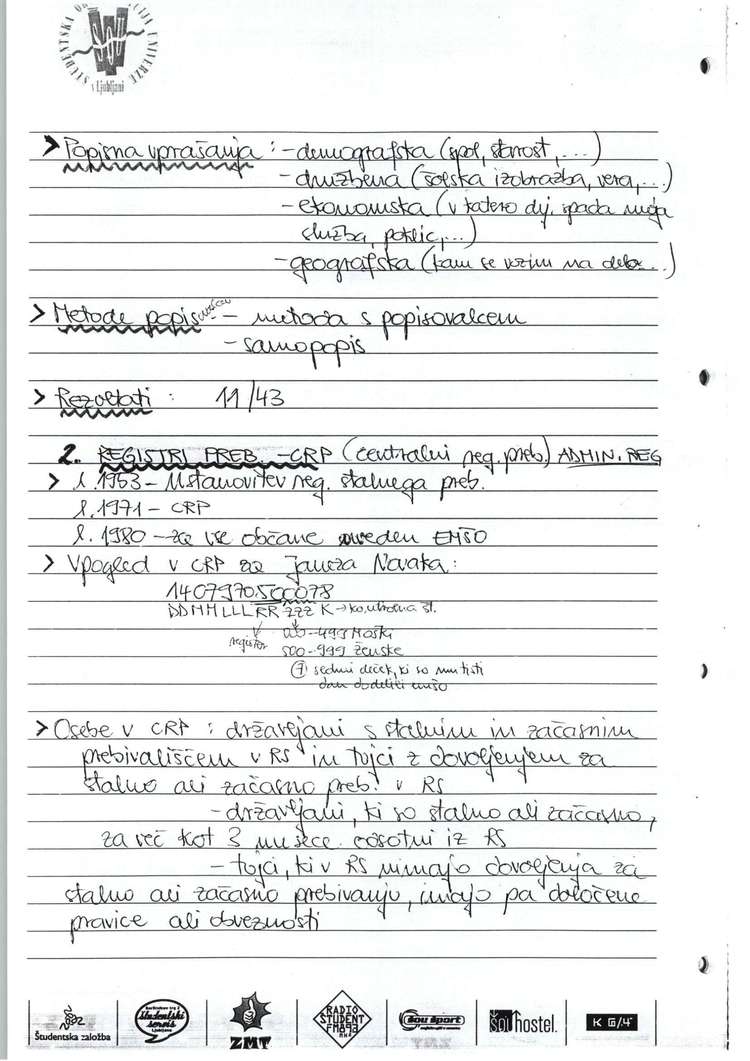 ŠTUDENTSKA ORGANIZACIJA UNIVERZE
ŠOU
v Ljubljani
> Popisna vprašanja : - demografska (spol, starost, ...)
- družbena (šolska izobrazba, vera, ...)
- ekonomska (v katero dej. spada moja
služba, poklic, ...)
- geografska (kam se vozim na delo...)
> Metode popisovanja: - metoda s popisovalcem
- samopopis
> Rezultati : 11/43
2. REGISTRI PREB. - CRP (centralni reg. preb) ADMIN. REG
> l. 1953 - Ustanovitev reg. stalnega preb.
l. 1971 - CRP
l. 1980 - za vse občane uveden EMŠO
> Vpogled v CRP za Janeza Novaka:
1407970500078
DDMMLLLRRZZZK → kontrolna št.
register 000-499 Moški
500-999 ženske
7 sedmi deček, ki so mu tisti
dan dodelili emšo
> Osebe v CRP : državljani s stalnim in začasnim
prebivališčem v RS in tujci z dovoljenjem za
stalno ali začasno preb. v RS
- državljani, ki so stalno ali začasno,
za več kot 3 mesece odsotni iz RS
- tujci, ki v RS nimajo dovoljenja za
stalno ali začasno prebivanje, imajo pa določene
pravice ali obveznosti
Študentska založba
Študentski servis
Ljubljana
ZMT
RADIO
ŠTUDENT
FM 89,3
MHZ
šou šport
šou hostel.
K6/4